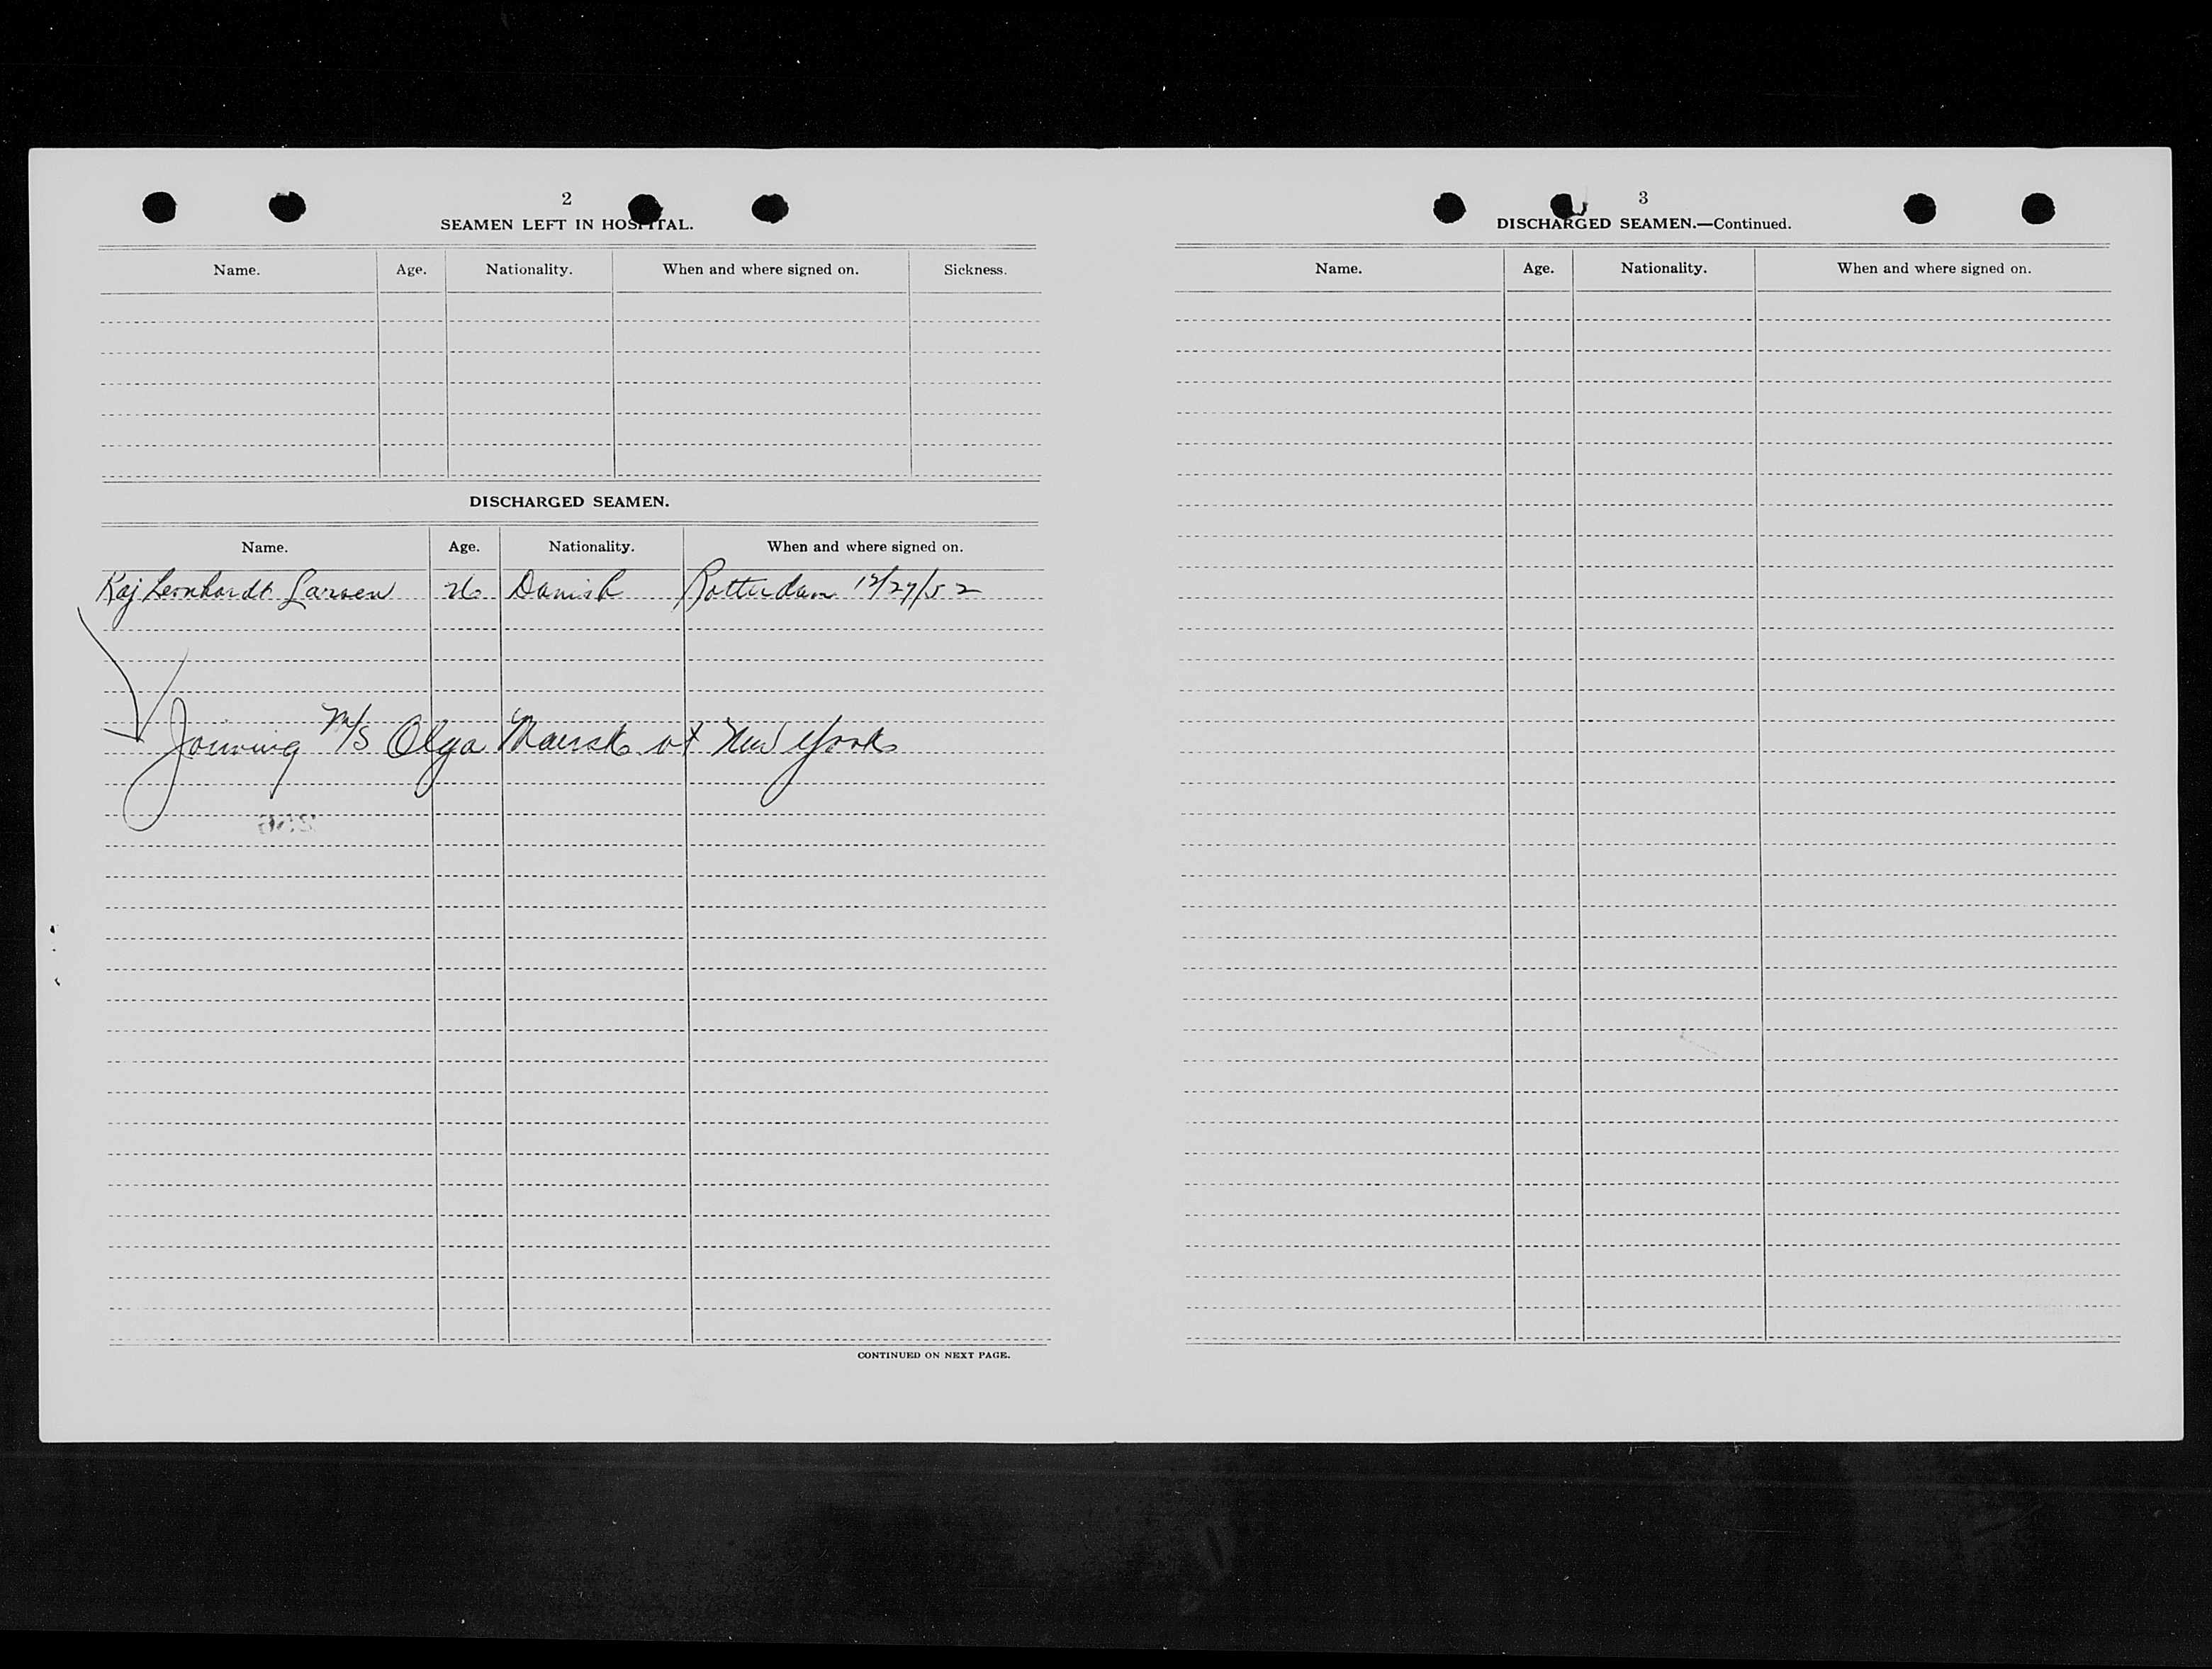 2
SEAMEN LEFT IN HOSPITAL.
Name. Age. Nationality. When and where signed on. Sickness.
DISCHARGED SEAMEN.
Name. Age. Nationality. When and where signed on.
Kaj Leonhardt Larsen 26 Danish Rotterdam 12/27/52
Joining M/S Olga Maersk at New York
CONTINUED ON NEXT PAGE.
3
DISCHARGED SEAMEN.—Continued.
Name. Age. Nationality. When and where signed on.